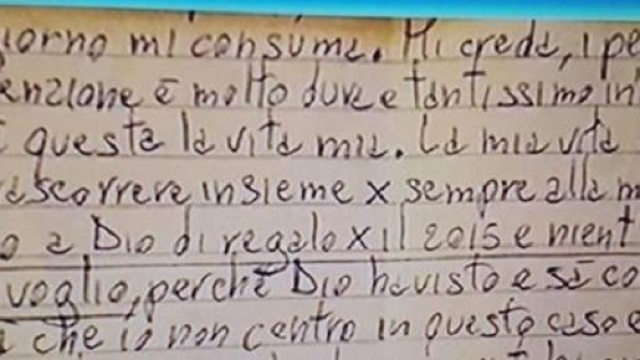 iorno mi consuma. Mi creda, i pe
enzione è molto dura e tantissimo in
è questa la vita mia. La mia vita
ascorrere insieme x sempre alla m
o a Dio di regalo x il 2015 e nient
voglio, perchè Dio ha visto e sà co
che io non centro in questo caso e